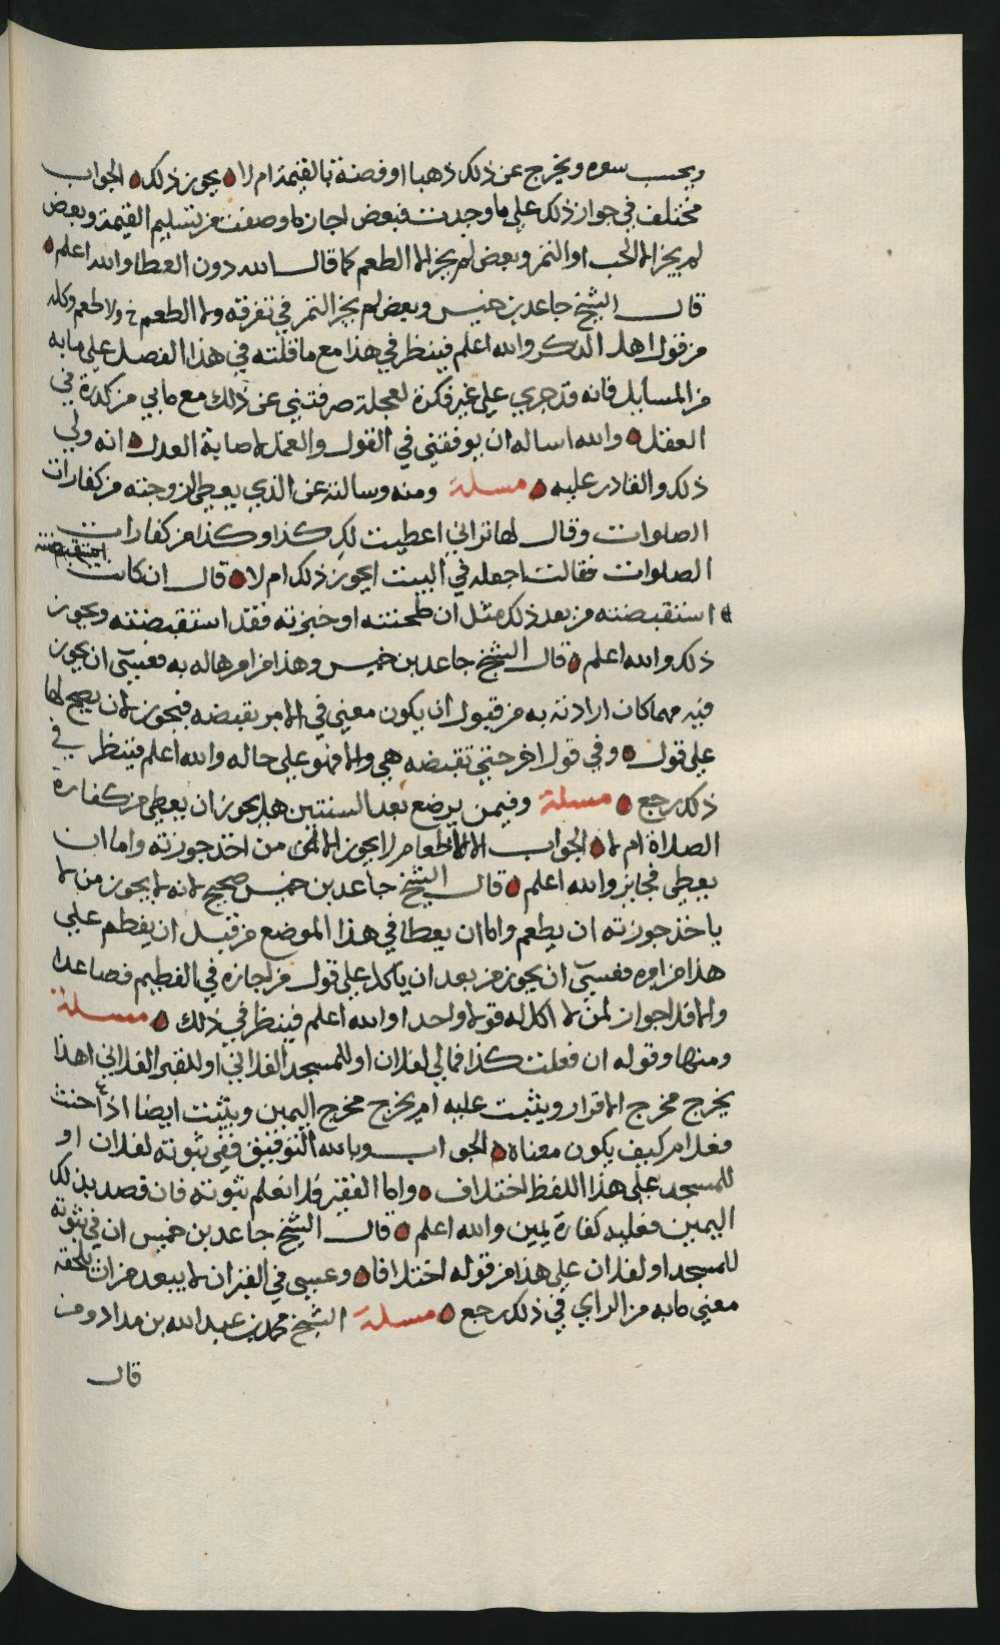 ويحسب سعره ويخرج عن ذلك ذهبا او فضة بالقيمة ام لا يجوز ذلك الجواب
مختلف في جواز ذلك على ما وجدت فبعض اجاز ما وصفت من تسليم القيمة وبعض
لم يجز الا الحب او التمر وبعض لم يجز الا الطعم كما قال الله دون العطا والله اعلم
قال الشيخ جاعد بن خميس وبعض لم يجز التمر في تفرقة ولا الطعم خ ولا طعم وكله
من قول اهل الذكر والله اعلم فينظر في هذا مع ما قلته في هذا الفصل على ما به
من المسايل فانه قد جرى على غير فكرة لعجلة صرفتني عن ذلك مع ما بي من كدرة في
العقل والله اساله ان يوفقني في القول والعمل لاصابة العدل انه ولي
ذلك والقادر عليه مسلة ومنه وسالته عن الذي يعطي لزوجته من كفارات
الصلوات وقال لها تراني اعطيت لك كذا وكذا من كفارات
الصلوات فقالت اجعله في البيت ايجوز ذلك ام لا قال ان كانت
استقبضته من بعد ذلك مثل ان طحنته او خبزته فقد استقبضته ويجوز
ذلك والله اعلم قال الشيخ جاعد بن خميس وهذا من امرها له به فعسى ان يجوز
فيه مهما كان ارادته به من قبول ان يكون معنى في الامر بقبضه فيجوز لان يصح لها
على قول وفي قول اخر حتى تقبضه هي والا فهو على حاله والله اعلم فينظر في
ذلك رجع مسلة وفيمن يرضع بعد السنتين هل يجوز ان يعطى من كفارة
الصلاة ام لا الجواب اما الاطعام لا يجوز الا لمن اخذ جوزته واما ان
يعطي فجايز والله اعلم قال الشيخ جاعد بن خميس صحيح لانه لا يجوز من لا
ياخذ جوزته ان يطعم واما ان يعطا في هذا الموضع من قبل ان يفطم على
هذا من امره فعسى ان يجوز من بعد ان ياكل على قول من اجازه في الفطيم فصاعدا
والا فلا جواز لمن لا اكل له قولا واحدا والله اعلم فينظر في ذلك مسلة
ومنها وقوله ان فعلت كذا فمالي لفلان او للمسجد الفلاني او للقبر الفلاني اهذا
يخرج مخرج الاقرار ويثبت عليه ام يخرج مخرج اليمين ويثبت ايضا اذا حنث
فعلا ام كيف يكون معناه الجواب وبالله التوفيق ففي ثبوته لفلان او
للمسجد على هذا اللفظ اختلاف واما القبر فلا نعلم ثبوته فان قصد بذلك
اليمين فعليه كفارة يمين والله اعلم قال الشيخ جاعد بن خميس ان في ثبوته
للمسجد او لفلان على هذا من قوله اختلافا وعسى في القبر ان لا يبعد من ان يلحقه
معنى ما به من الراي في ذلك رجع مسلة الشيخ محمد بن عبد الله بن مداد ومن
قال